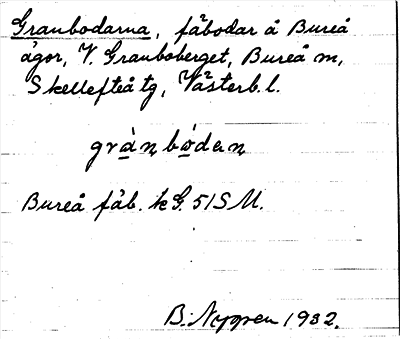 Granbodarna, fäbodar å Bureå
ägor, V. Granboberget, Bureå m,
Skellefteå tg, Västerb. l.
grànbódaṇ
Bureå fäb. k G. 51 S M.
B. Nygren 1932.